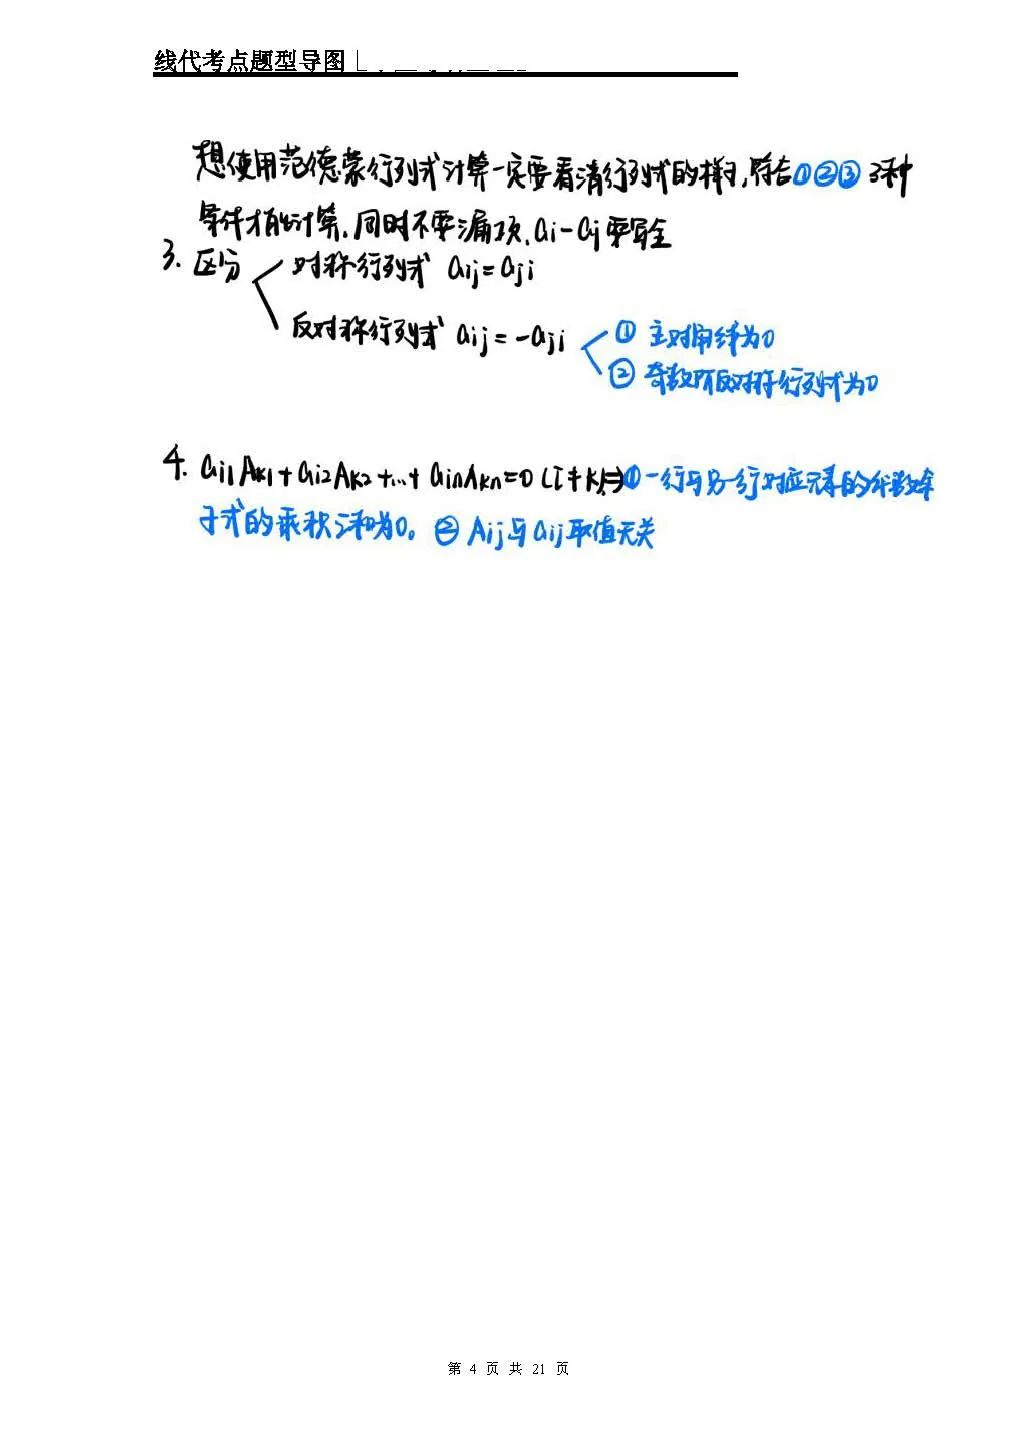 线代考点题型导图
想使用范德蒙行列式计算一定要看清行列式的样子,符合①②③3种
条件才能计算.同时不要漏项,ai-aj要写全
3. 区分 对称行列式 aij=aji
反对称行列式 aij=-aji ① 主对角线为0
② 奇数阶反对称行列式为0
4. ai1Ak1+ai2Ak2+...+ainAkn=0 (i≠k)⇒①一行与另一行对应元素的代数余
子式的乘积之和为0。 ② Aij与aij取值无关
第 4 页 共 21 页